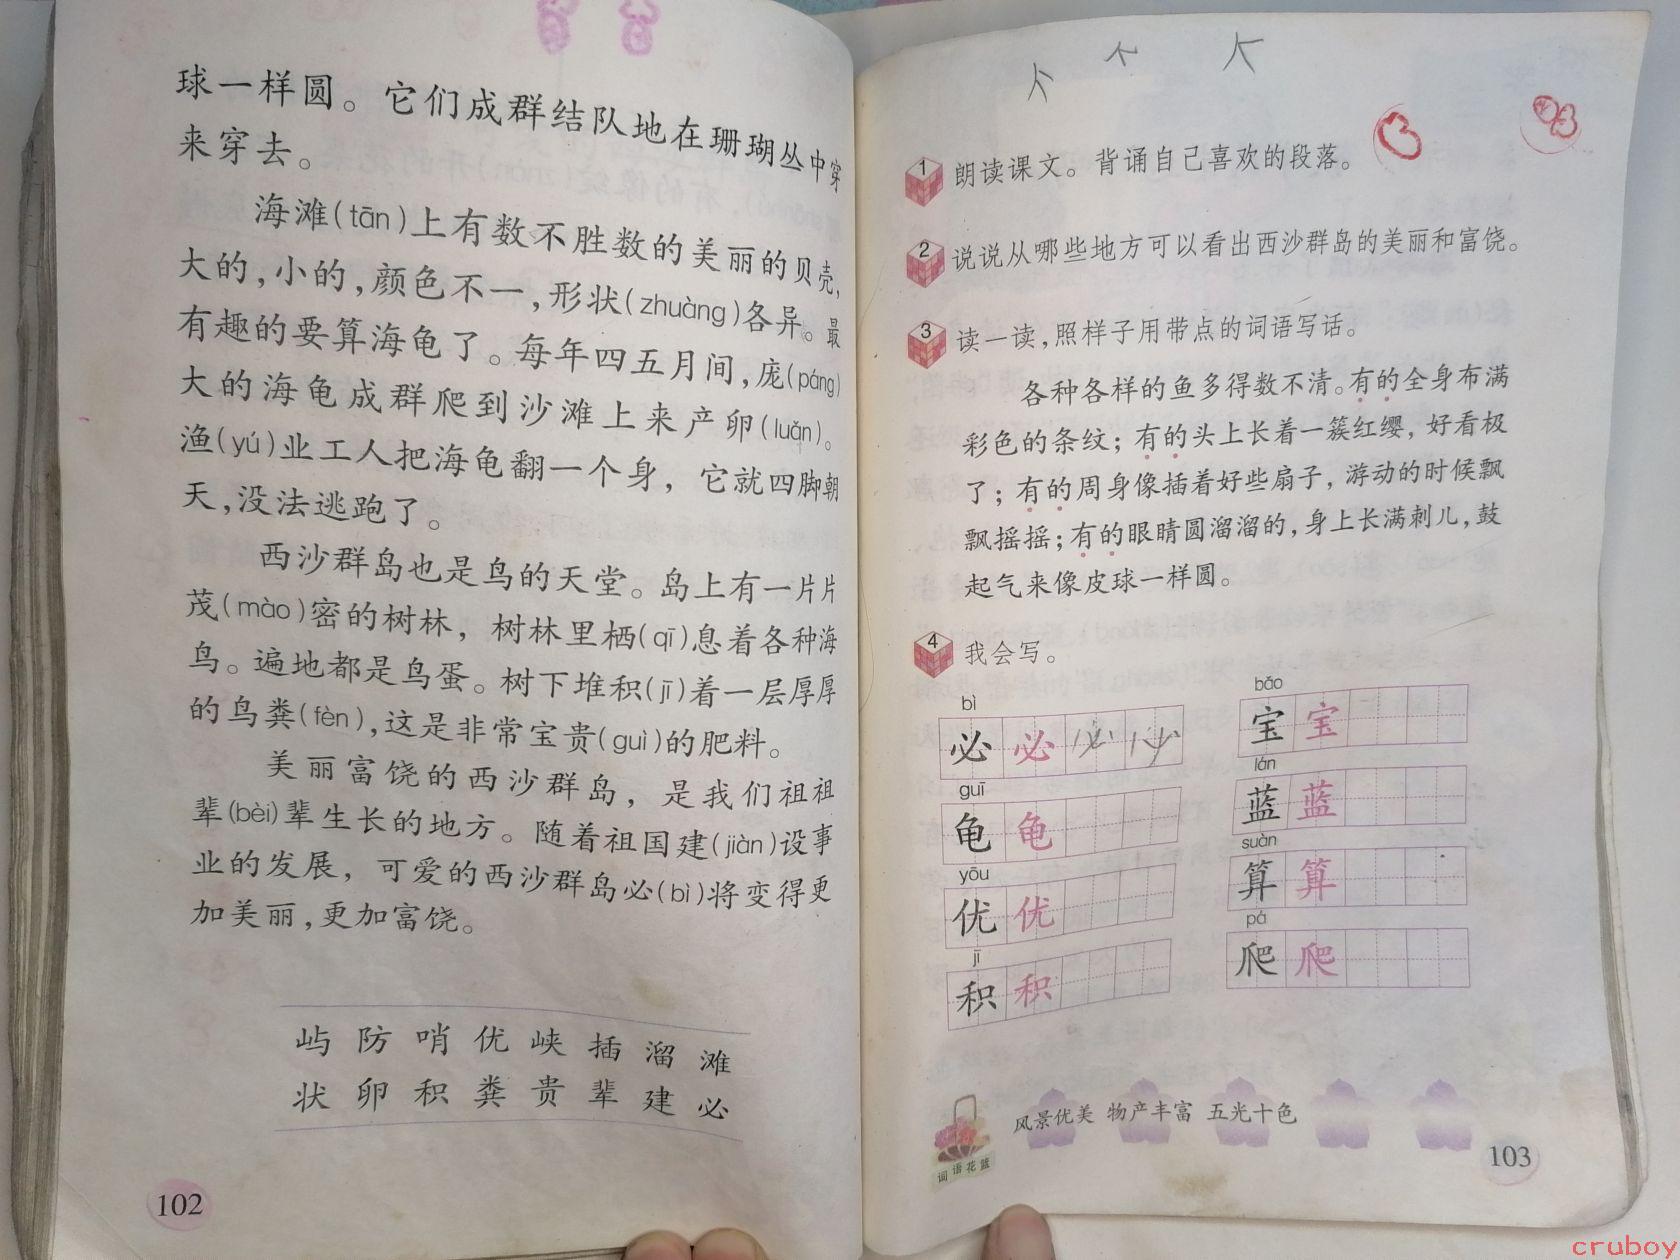 球一样圆。它们成群结队地在珊瑚丛中穿
来穿去。
海滩(tān)上有数不胜数的美丽的贝壳,
大的,小的,颜色不一,形状(zhuàng)各异。最
有趣的要算海龟了。每年四五月间,庞(páng)
大的海龟成群爬到沙滩上来产卵(luǎn)。
渔(yú)业工人把海龟翻一个身，它就四脚朝
天,没法逃跑了。
西沙群岛也是鸟的天堂。岛上有一片片
茂(mào)密的树林，树林里栖(qī)息着各种海
鸟。遍地都是鸟蛋。树下堆积(jī)着一层厚厚
的鸟粪(fèn),这是非常宝贵(guì)的肥料。
美丽富饶的西沙群岛，是我们祖祖
辈(bèi)辈生长的地方。随着祖国建(jiàn)设事
业的发展，可爱的西沙群岛必(bì)将变得更
加美丽,更加富饶。
屿 防 哨 优 峡 插 溜 滩
状 卵 积 粪 贵 辈 建 必
102
1 朗读课文。背诵自己喜欢的段落。
2 说说从哪些地方可以看出西沙群岛的美丽和富饶。
3 读一读,照样子用带点的词语写话。
各种各样的鱼多得数不清。有的全身布满
彩色的条纹；有的头上长着一簇红缨，好看极
了；有的周身像插着好些扇子，游动的时候飘
飘摇摇；有的眼睛圆溜溜的,身上长满刺儿,鼓
起气来像皮球一样圆。
4 我会写。
bì bǎo
必 必 必 必 宝 宝
guī lán
龟 龟 蓝 蓝
yōu suàn
优 优 算 算
jī pá
积 积 爬 爬
词语花篮
风景优美 物产丰富 五光十色
103
cruboy